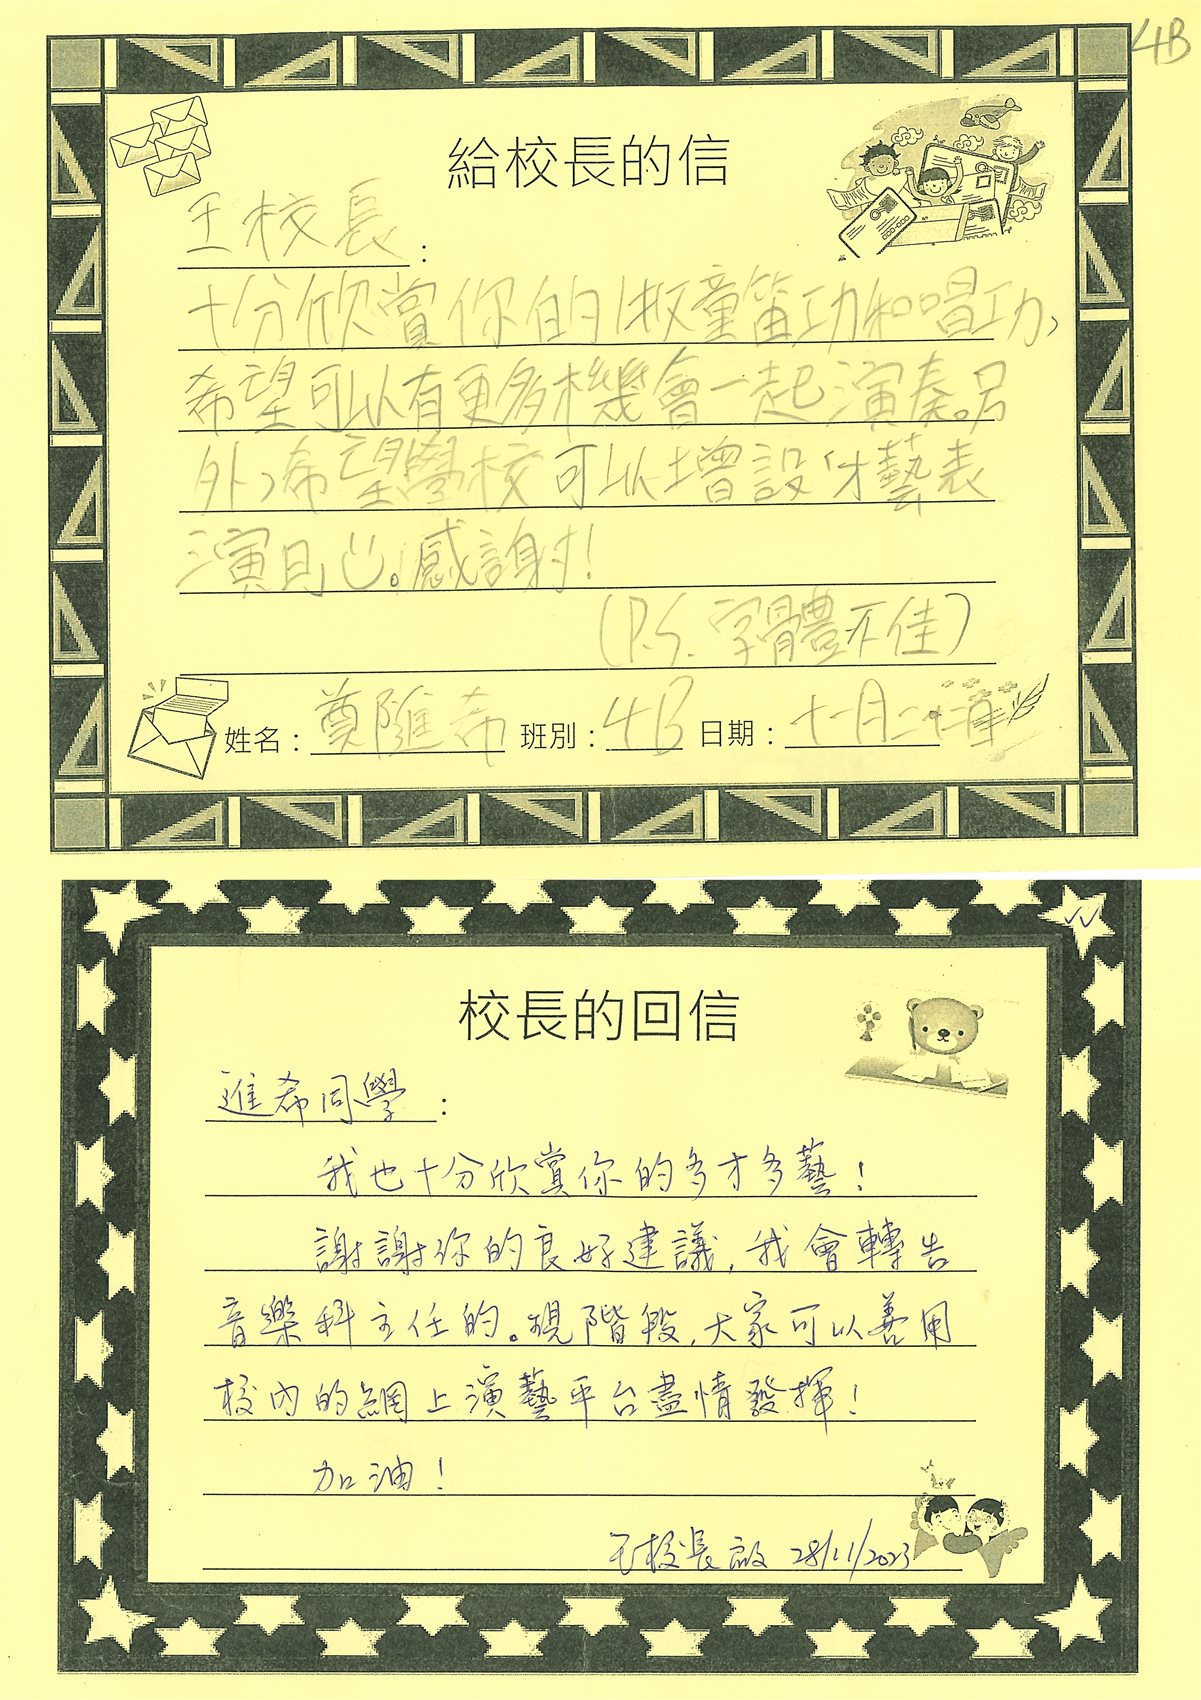 4B
給校長的信
王校長：
十分欣賞你的牧童笛功和唱功，
希望可以有更多機會一起演奏。另
外，希望學校可以增設才藝表
演日。感謝！
(P.S. 字體不佳)
姓名： 進希 班別：4B 日期：十一月二十
校長的回信
進希同學：
我也十分欣賞你的多才多藝！
謝謝你的良好建議，我會轉告
音樂科主任的。現階段，大家可以善用
校內的網上演藝平台盡情發揮！
加油！
王校長啟 28/11/2023